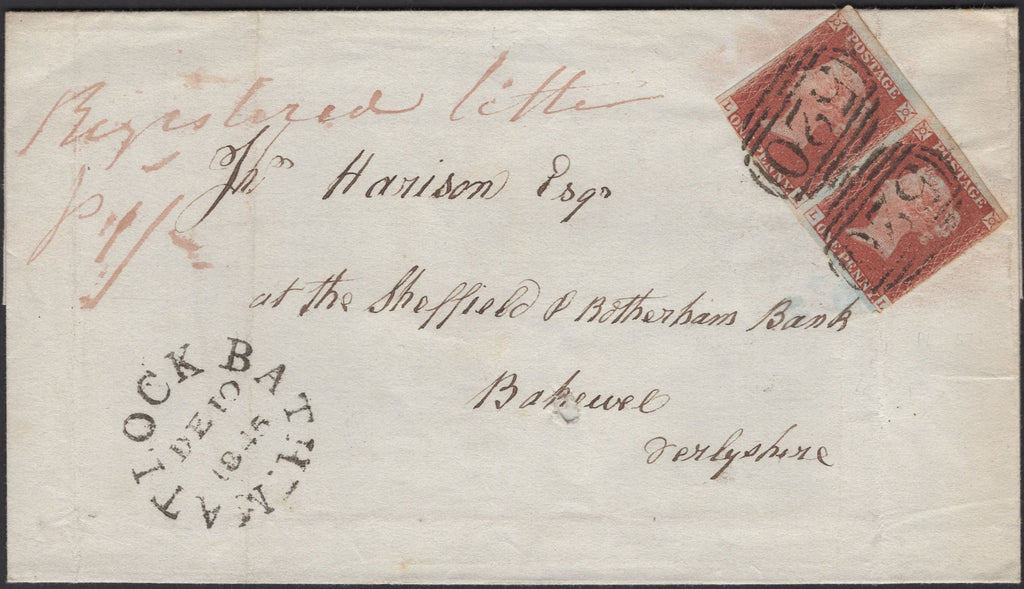 Registered letter
p 1/-
Jnº Harison Esqr
at the Sheffield & Rotherham Bank
Bakewel
Derbyshire
MATLOCK BATH
DE 10
POSTAGE
ONE PENNY
L
520
POSTAGE
ONE PENNY
L L